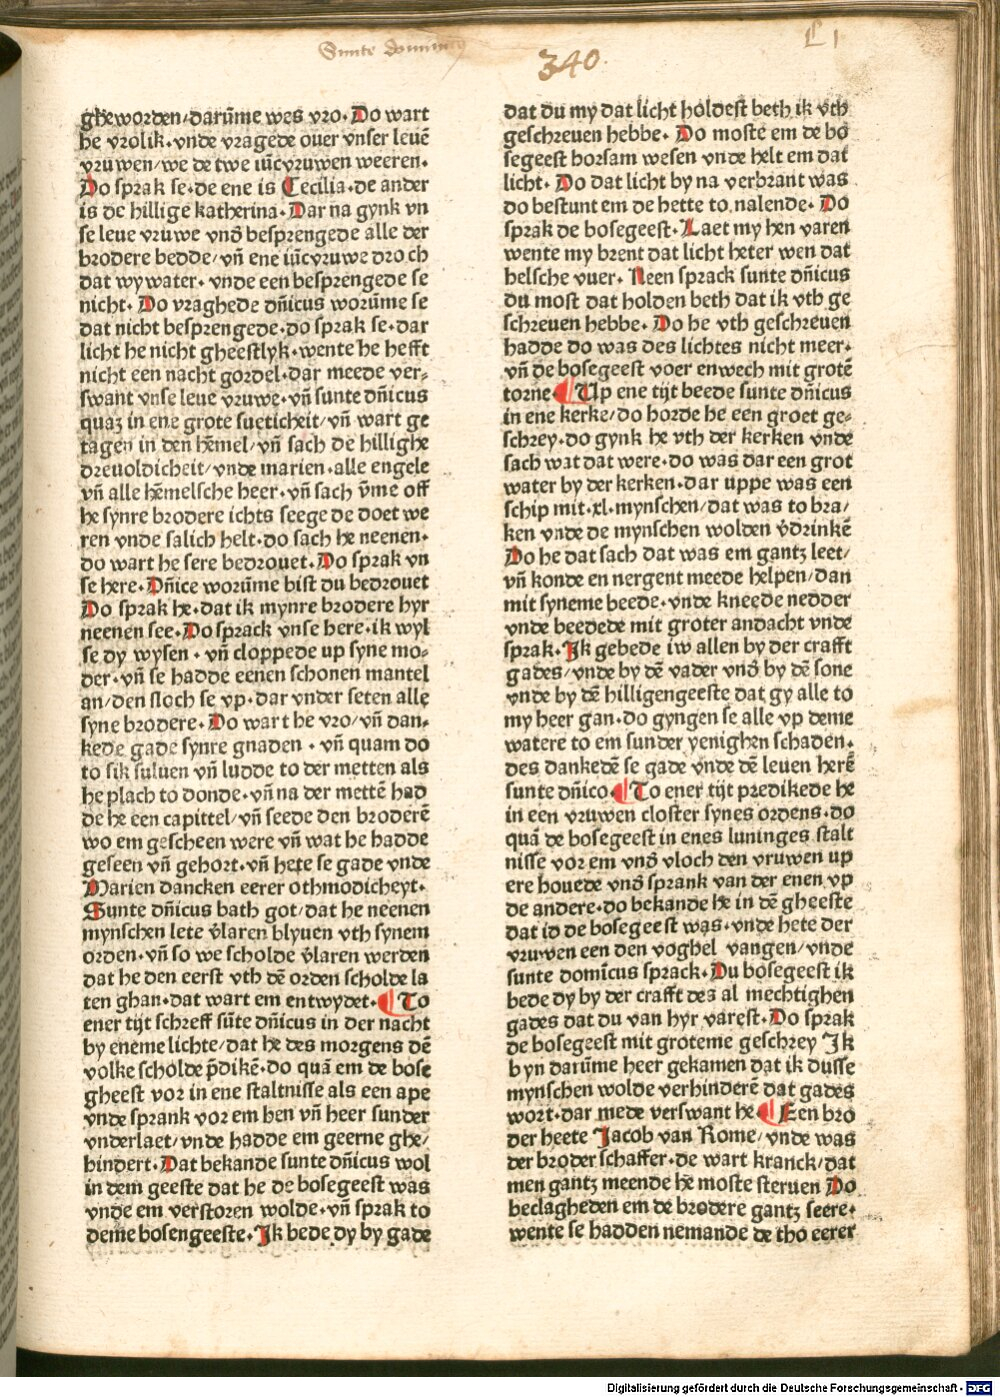 Sunte dominicus
340.
LI
gheworden/darūme wes vro. Do wart
he vrolik. vnde vragede ouer vnser leuē
vruwen/we de twe iūcvruwen weeren.
Do sprak se. de ene is Cecilia. de ander
is de hillige katherina. Dar na gynk vn
se leue vruwe vnd besprengede alle der
brodere bedde/vn̄ ene iūcvruwe droch
dat wywater. vnde een besprengede se
nicht. Do vraghede dn̄icus worūme se
dat nicht besprengede. do sprak se. dar
licht he nicht gheestlyk. wente he hefft
nicht een nacht gordel. dar meede ver-
swant vnse leue vruwe. vn̄ sunte dn̄icus
quaz in ene grote sueticheit/vn̄ wart ge
tagen in den hēmel/vn̄ sach de hillighe
dreuoldicheit/vnde marien. alle engele
vn̄ alle hēmelsche heer. vn̄ sach v̄me off
he synre brodere ichts seege de doet we
ren vnde salich helt. do sach he neenen.
do wart he sere bedrouet. Do sprak vn
se here. Dn̄ice worūme bist du bedrouet
Do sprak he. dat ik mynre brodere hyr
neenen see. Do sprack vnse here. ik wyl
se dy wysen. vn̄ cloppede up syne mo-
der. vn̄ se hadde eenen schonen mantel
an/den sloch se vp. dar vnder seten alle
syne brodere. Do wart he vro/vn̄ dan-
kede gade synre gnaden. vn̄ quam do
to sik suluen vn̄ ludde to der metten als
he plach to donde. vn̄ na der mettē had
de he een capittel/vn̄ seede den broderē
wo em gescheen were vn̄ wat he hadde
geseen vn̄ gehort. vn̄ hete se gade vnde
Marien dancken eerer othmodicheyt.
Sunte dn̄icus bath got/dat he neenen
mynschen lete v̄laren blyuen vth synem
orden. vn̄ so we scholde v̄laren werden
dat he den eerst vth dē orden scholde la
ten ghan. dat wart em entwydet. ¶ To
ener tijt schreff sūte dn̄icus in der nacht
by eneme lichte/dat he des morgens dē
volke scholde p̄dikē. do quā em de bose
gheest vor in ene staltnisse als een ape
vnde sprank vor em hen vn̄ heer sunder
vnderlaet/vnde hadde em geerne ghe/
hindert. Dat bekande sunte dn̄icus wol
in dem geeste dat he de bosegeest was
vnde em verstoren wolde. vn̄ sprak to
deme bosengeeste. Ik bede dy by gade
dat du my dat licht holdest beth ik vth
geschreuen hebbe. Do moste em de bo
segeest horsam wesen vnde helt em dat
licht. Do dat licht by na verbrant was
do bestunt em de hette to nalende. Do
sprak de bosegeest. Laet my hen varen
wente my brent dat licht heter wen dat
helsche vuer. Neen sprack sunte dn̄icus
du most dat holden beth dat ik vth ge
schreuen hebbe. Do he vth geschreuen
hadde do was des lichtes nicht meer.
vn̄ de bosegeest voer enwech mit grotē
torne. ¶ Up ene tijt beede sunte dn̄icus
in ene kerke/do horde he een groet ge-
schrey. do gynk he vth der kerken vnde
sach wat dat were. do was dar een grot
water by der kerken. dar uppe was een
schip mit .xl. mynschen/dat was to bra/
ken vnde de mynschen wolden v̄drinkē
Do he dat sach dat was em gantz leet/
vn̄ konde en nergent meede helpen/dan
mit syneme beede. vnde kneede nedder
vnde beedede mit groter andacht vnde
sprak. Ik gebede iw allen by der crafft
gades/vnde by dē vader vnd by dē sone
vnde by dē hilligengeeste dat gy alle to
my heer gan. do gyngen se alle vp deme
watere to em sunder yenighen schaden.
des dankedē se gade vnde dē leuen herē
sunte dn̄ico. ¶ To ener tijt predikede he
in een vruwen closter synes ordens. do
quā de bosegeest in enes luninges stalt
nisse vor em vnd vloch den vruwen up
ere houede vnd sprank van der enen vp
de andere. do bekande he in dē gheeste
dat id de bosegeest was. vnde hete der
vruwen een den voghel vangen/vnde
sunte domicus sprack. Du bosegeest ik
bede dy by der crafft des al mechtighen
gades dat du van hyr varest. Do sprak
de bosegeest mit groteme geschrey Ik
byn darūme heer gekamen dat ik dusse
mynschen wolde verhinderē dat gades
wort. dar mede verswant he. ¶ Een bro
der heete Jacob van Rome/vnde was
der broder schaffer. de wart kranck/dat
men gantz meende he moste steruen Do
beclagheden em de brodere gantz seere.
wente se hadden nemande de tho eerer
Digitalisierung gefördert durch die Deutsche Forschungsgemeinschaft - DFG